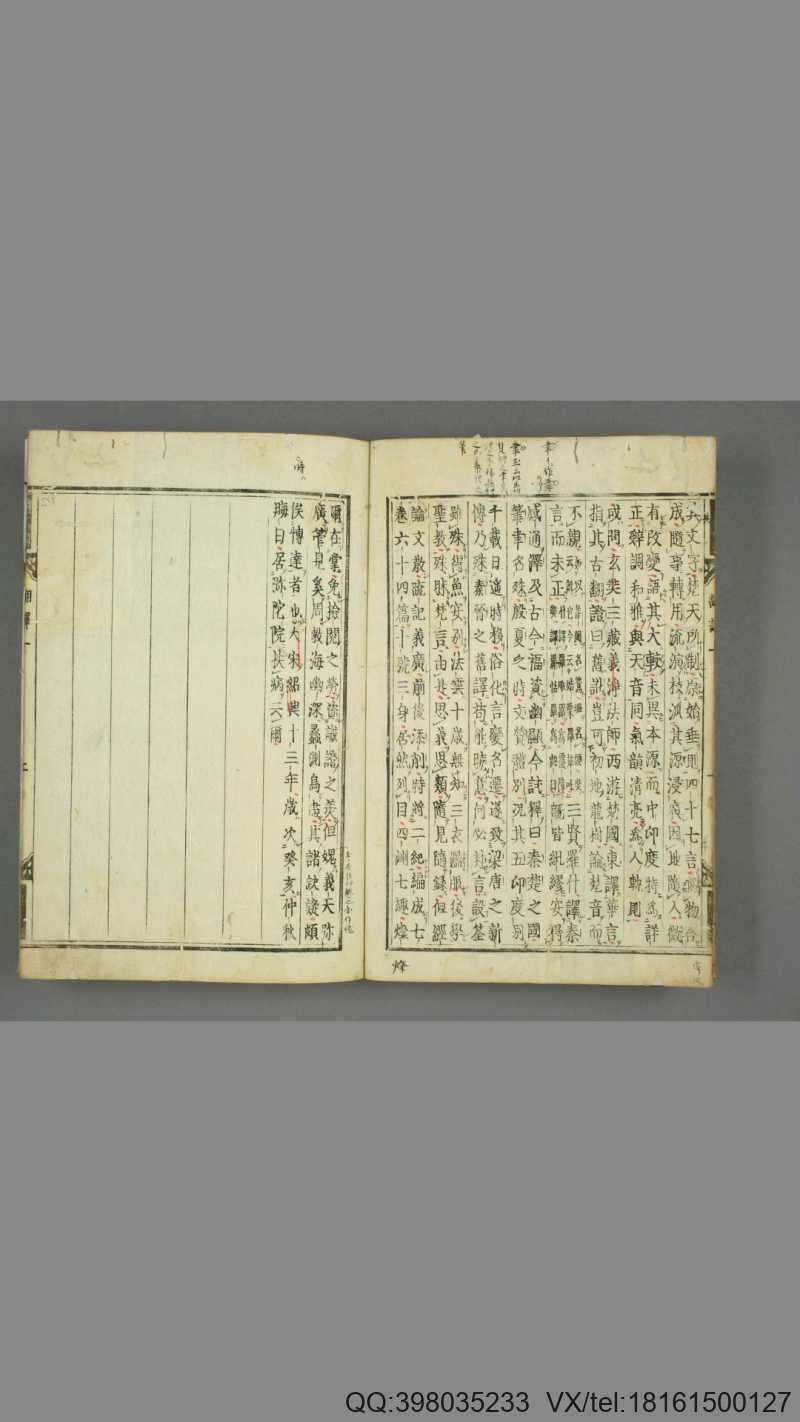 其文字梵天所制原始垂則四十七言寓物合
成隨事轉用流演枝派其源浸廣因地隨人微
有改變語其大較未異本源而中印度特為詳
正辭調和雅與天音同氣韻清亮為人軌則
或問玄奘三藏義淨法師西游梵國東譯華言
指其古翻證曰舊訛豈可初地龍樹論梵音而
不親三賢羅什譯秦
言而未正既皆紕繆安得
感通澤及古今福資幽顯今試釋曰秦楚之國
筆聿名殊殷夏之時文質體別況其五印度別
千載日遙時移俗化言變名遷遂致梁唐之新
傳乃殊秦晉之舊譯苟能曉意何必封言設筌
雖殊得魚安別法雲十歲無知三衣濫服後學
聖教殊昧梵言由是思義思類隨見隨錄但經
論文散疏記義廣前後添削時將二紀編成七
卷六十四篇十號三身居然列目四洲七趣燦
燦
爾在掌免檢閱之勞資誠證之美但媿義天彌
廣管見奚周教海幽深蠡測焉盡其諸訣疑頗
俟博達者也大宋紹興十三年歲次癸亥仲秋
晦日居彌陀院扶病云爾
時
QQ:398035233 VX/tel:18161500127